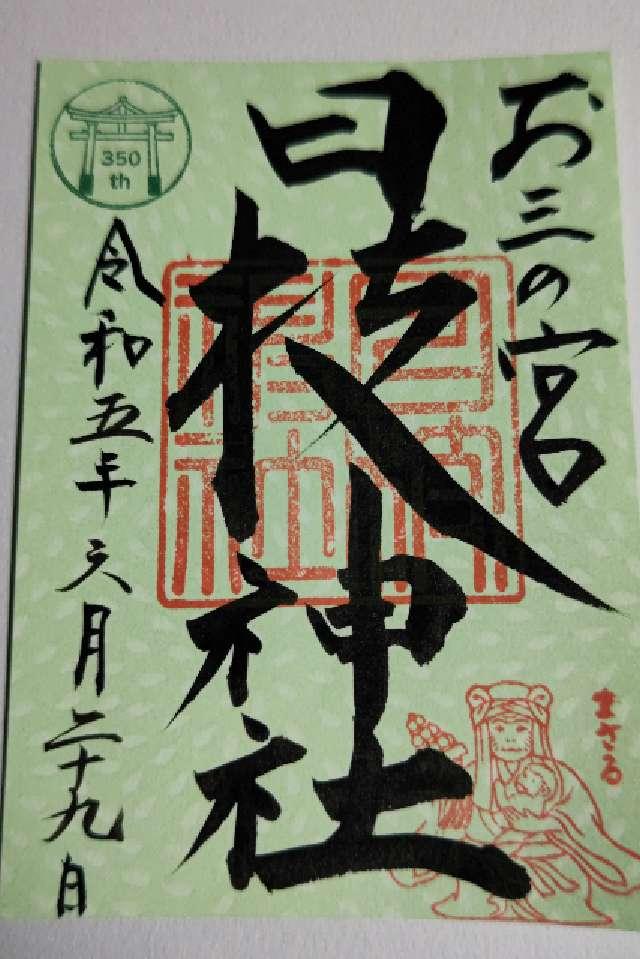 お三の宮
日枝神社
令和五年六月二十九日
350
th
まさる